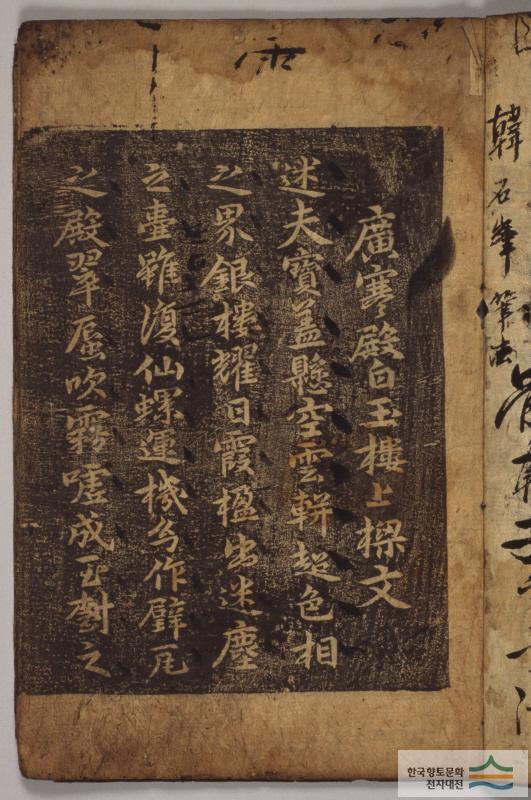 韓石峯筆法
廣寒殿白玉樓上樑文
述夫寶盖懸空雲輧超色相
之界銀樓耀日霞楹出迷塵
之壺雖復仙螺運機幻作璧瓦
之殿翠蜃吹霧噓成玉樹之
한국향토문화
전자대전